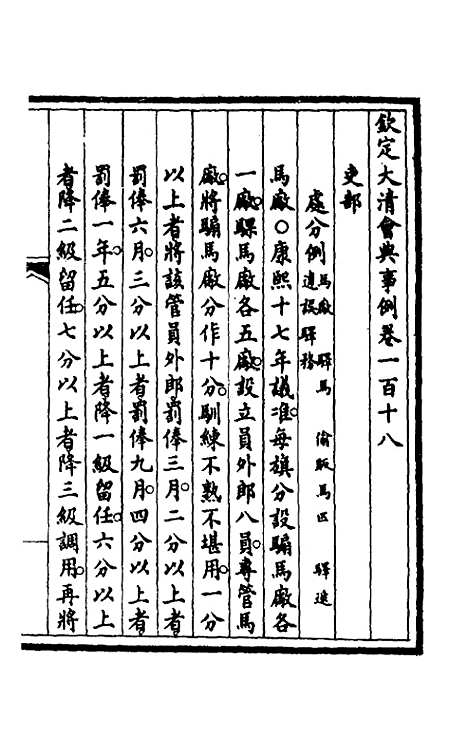 欽定大清會典事例卷一百十八
吏部
處分例 馬廠 驛馬 偷販馬匹 驛遞
違誤驛務
馬廠○康熙十七年議准。每旗分設騸馬廠各
一廠。騍馬廠各五廠。設立員外郎八員。專管馬
廠。將騸馬廠分作十分。馴練不熟不堪用。一分
以上者將該管員外郎罰俸三月。二分以上者
罰俸六月。三分以上者罰俸九月。四分以上者
罰俸一年。五分以上者降一級留任。六分以上
者降二級留任。七分以上者降三級調用。再將